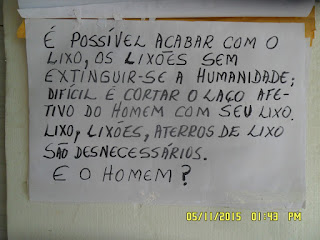 É POSSÍVEL ACABAR COM O
LIXO, OS LIXÕES SEM
EXTINGUIR-SE A HUMANIDADE;
DIFÍCIL É CORTAR O LAÇO AFE-
TIVO DO HOMEM COM SEU LIXO.
LIXO, LIXÕES, ATERROS DE LIXO
SÃO DESNECESSÁRIOS.
E O HOMEM?
05/11/2015 01:43 PM